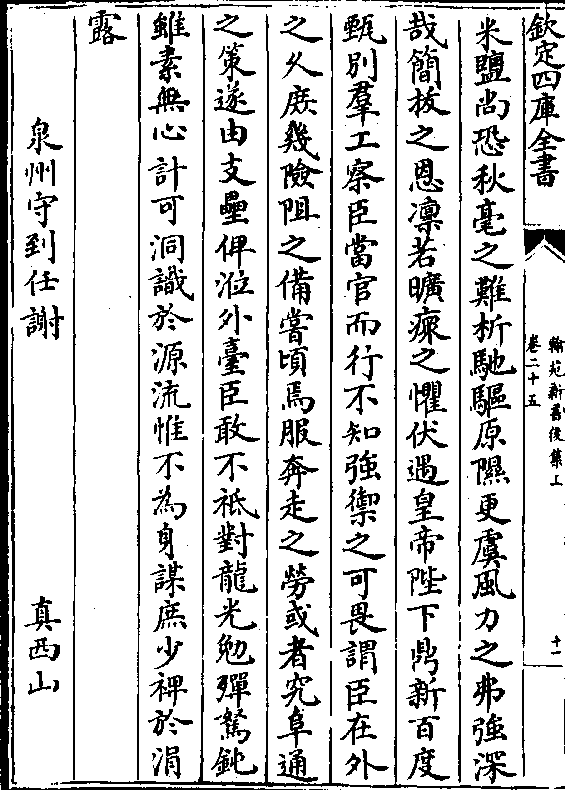 欽定四庫全書
翰苑新書後集上
卷二十五
十一
米鹽尚恐秋毫之難析馳驅原隰更虞風力之弗強深
哉簡拔之恩凛若曠瘝之懼伏遇皇帝陛下鼎新百度
甄別羣工察臣當官而行不知強禦之可畏謂臣在外
之久庶幾險阻之備嘗頃焉服奔走之勞或者究阜通
之策遂由支壘俾涖外臺臣敢不祗對龍光勉殫駑鈍
雖素無心計可洞識於源流惟不為身謀庶少裨於涓
露
泉州守到任謝
真西山